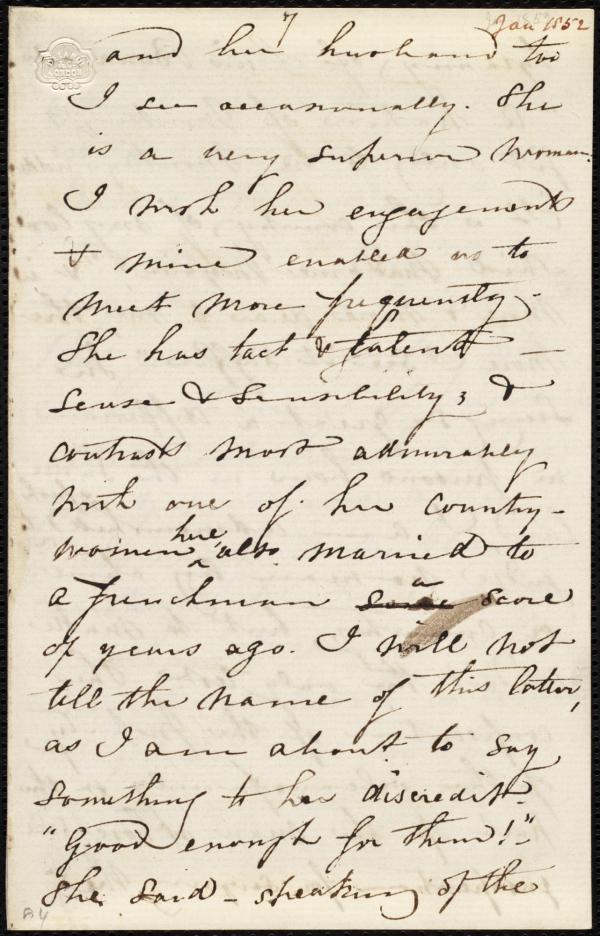 7
Jan 1852
and her husband too
I see occasionally. She
is a very superior woman.
I wish her engagements
& mine enabled us to
meet more frequently -
She has tact & talent -
sense & sensibility; &
contrasts most admirably
with one of her country-
women here, also married to
a frenchman some a score
of years ago. I will not
tell the name of this latter,
as I am about to say
something to her discredit.
"Good enough for them!"
She said - speaking of the